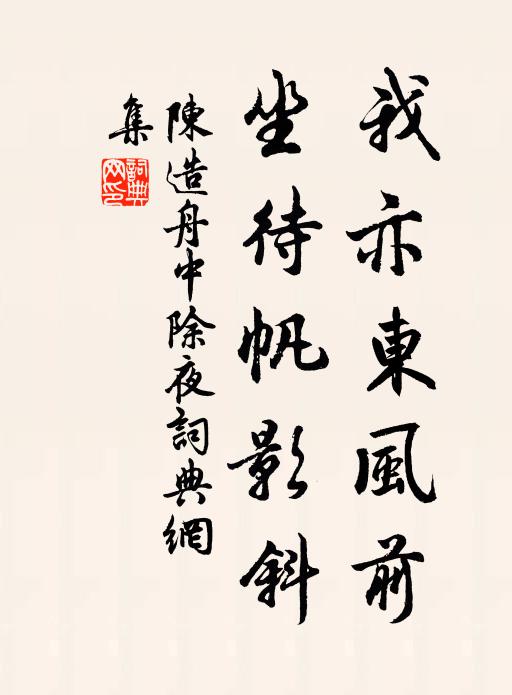 我亦東風前
坐待帆影斜
陳造舟中除夜詞典網
集
詞典網印